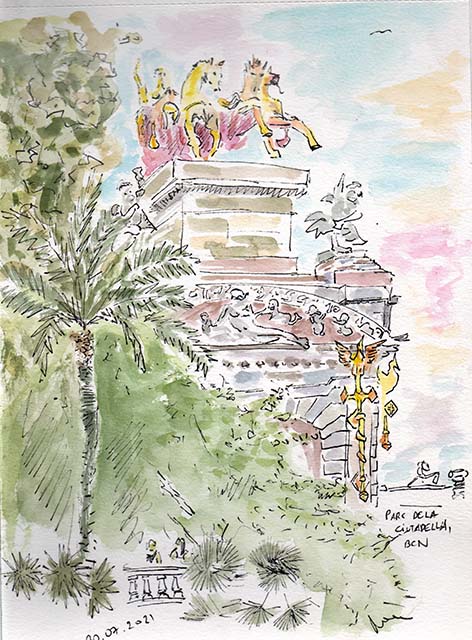 PARC DE LA
CIUTADELLA,
BCN
20.07.2021